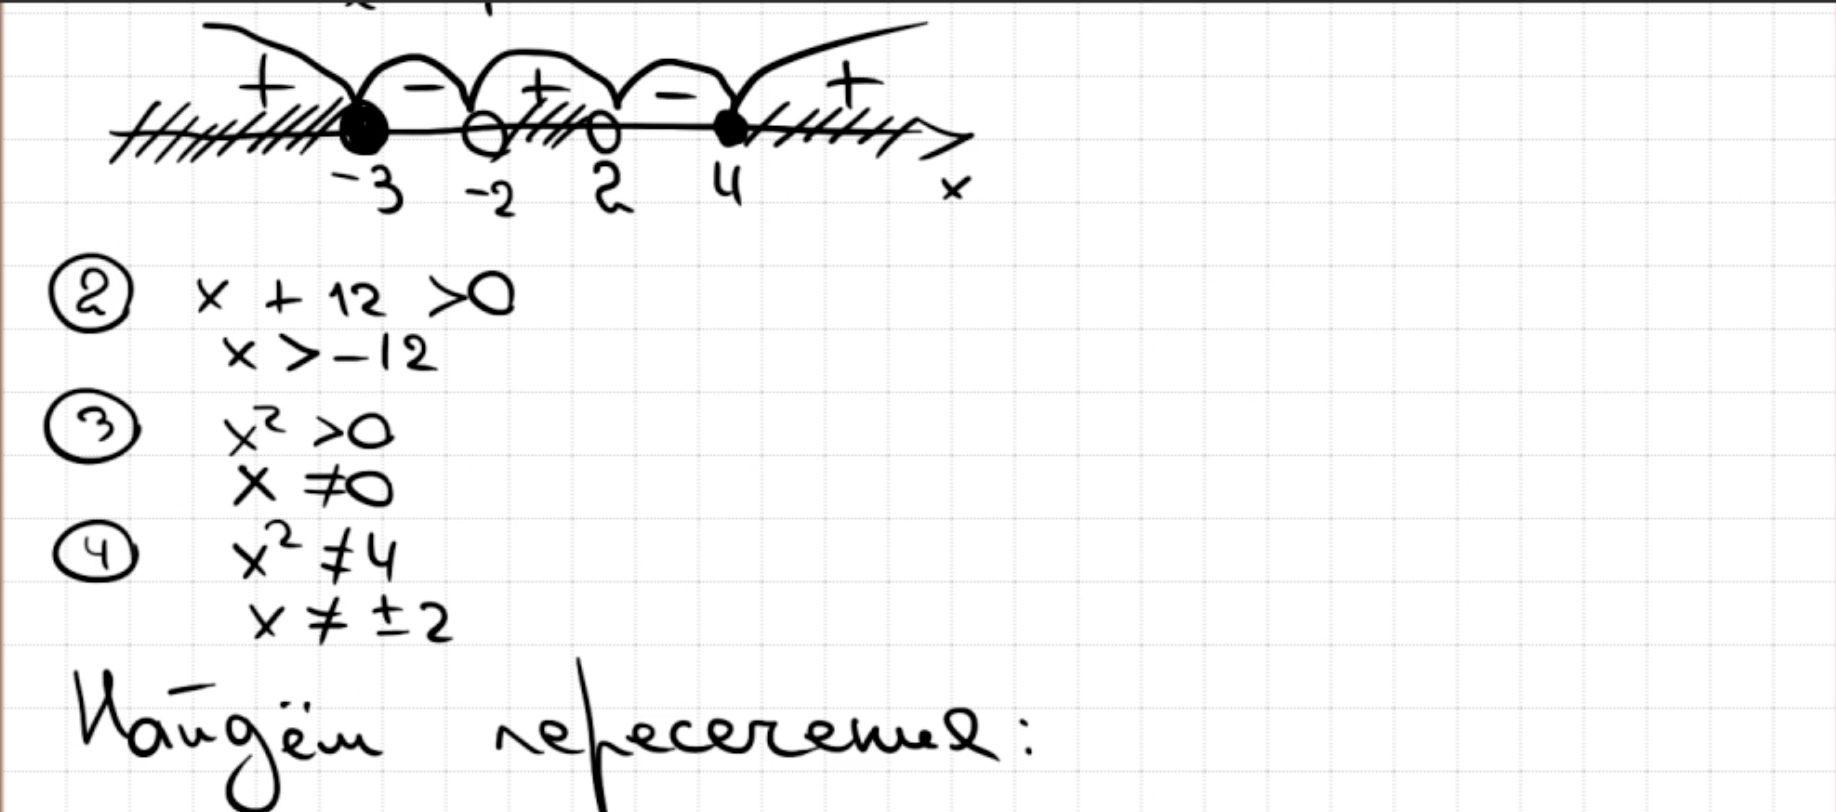 + - + - +
-3 -2 2 4 x
2 x + 12 >0
x > -12
3 x² >0
x ≠0
4 x² ≠4
x ≠ ±2
Найдём пересечения: